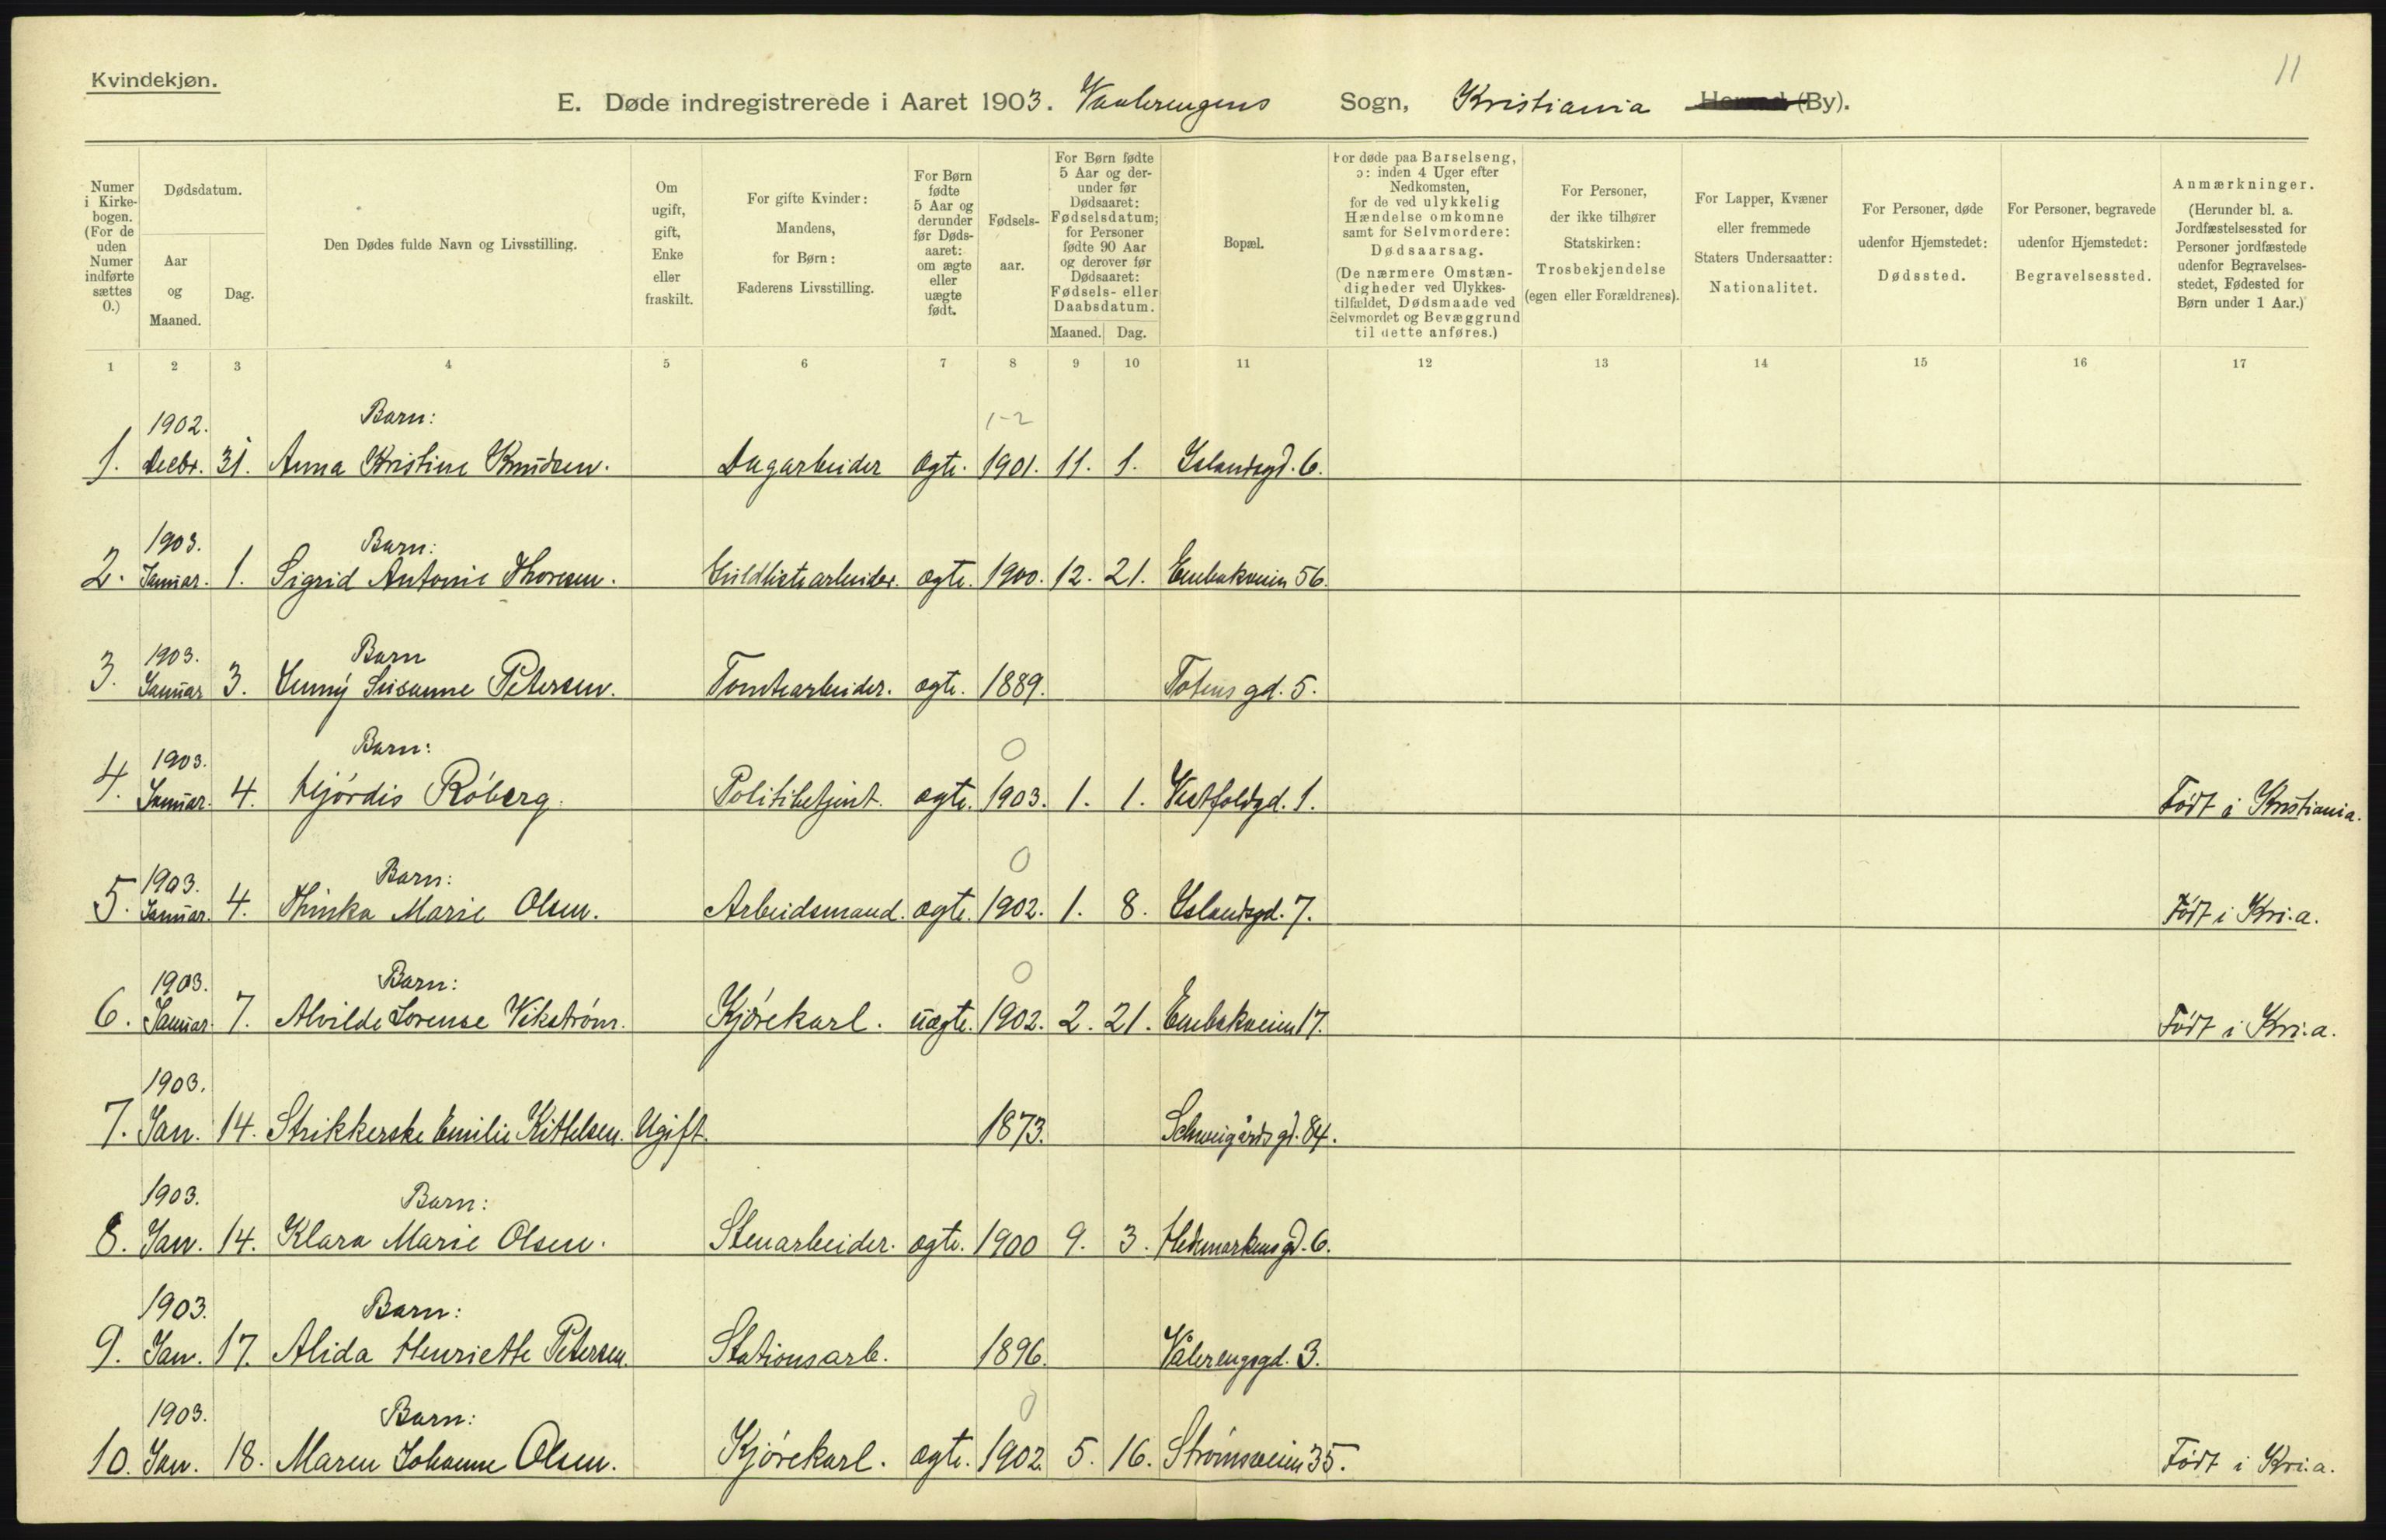 11
Kvindekjøn.
E. Døde indregistrerede i Aaret 1903. Vaalerengens Sogn, Kristiania Herred (By).
Numer i Kirkebogen. (For de uden Numer indførte sættes 0.)
Dødsdatum.
Aar og Maaned.
Dag.
Den Dødes fulde Navn og Livsstilling.
Om ugift, gift, Enke eller fraskilt.
For gifte Kvinder: Mandens, for Børn: Faderens Livsstilling.
For Børn fødte 5 Aar og derunder før Dødsaaret: om ægte eller uægte født.
Fødselsaar.
For Børn fødte 5 Aar og derunder før Dødsaaret: Fødselsdatum; for Personer fødte 90 Aar og derover før Dødsaaret: Fødsels- eller Daabsdatum.
Maaned. Dag.
Bopæl.
For døde paa Barselseng, ɔ: inden 4 Uger efter Nedkomsten, for de ved ulykkelig Hændelse omkomne samt for Selvmordere: Dødsaarsag. (De nærmere Omstændigheder ved Ulykkestilfældet, Dødsmaade ved Selvmordet og Bevæggrund til dette anføres.)
For Personer, der ikke tilhører Statskirken: Trosbekjendelse (egen eller Forældrenes).
For Lapper, Kvæner eller fremmede Staters Undersaatter: Nationalitet.
For Personer, døde udenfor Hjemstedet: Dødssted.
For Personer, begravede udenfor Hjemstedet: Begravelsessted.
Anmærkninger. (Herunder bl. a. Jordfæstelsessted for Personer jordfæstede udenfor Begravelsesstedet, Fødested for Børn under 1 Aar.)
1 2 3 4 5 6 7 8 9 10 11 12 13 14 15 16 17
1902. Barn: 1-2
1. Decbr. 31. Anna Kristine Knudsen. Dagarbeider ægte. 1901. 11. 1. Islandsgd. 6.
1903. Barn:
2. Januar. 1. Sigrid Antonie Thoresen. Guldlistearbeider. ægte. 1900. 12. 21. Enebakveien 56.
1903. Barn
3. Januar 3. Jenny Susanne Petersen. Tomtearbeider. ægte. 1889. Totens gd. 5.
1903. Barn: 0
4. Januar. 4. Hjørdis Røberg. Politibetjent. ægte. 1903. 1. 1. Vestfoldgd. 1. Født i Kristiania.
1903. Barn: 0
5. Januar. 4. Thinka Marie Olsen. Arbeidsmand. ægte. 1902. 1. 8. Islandsgd. 7. Født i Kri.a.
1903. Barn: 0
6. Januar. 7. Alvilde Lorense Vikstrøm. Kjørekarl. uægte. 1902. 2. 21. Enebakveien 17. Født i Kri.a.
1903.
7. Jan. 14. Strikkerske Emilie Kittelsen. Ugift. 1873. Schweigårdsgd. 84.
1903. Barn:
8. Jan. 14. Klara Marie Olsen. Stenarbeider. ægte. 1900 9. 3. Hedemarkens gd. 6.
1903. Barn:
9. Jan. 17. Alida Henriette Petersen. Stationsarb. 1896. Vålerengsgd. 3.
1903. Barn: 0
10. Jan. 18. Maren Johanne Olsen. Kjørekarl. ægte. 1902. 5. 16. Strømsveien 35. Født i Kri.a.